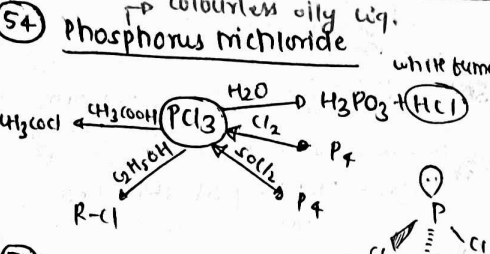 colourless oily liq.
54 Phosphorus trichloride
white fume
CH3COCl CH3COOH PCl3 H2O H3PO3 + HCl
Cl2 P4
C2H5OH SOCl2
R-Cl P4
P
Cl Cl